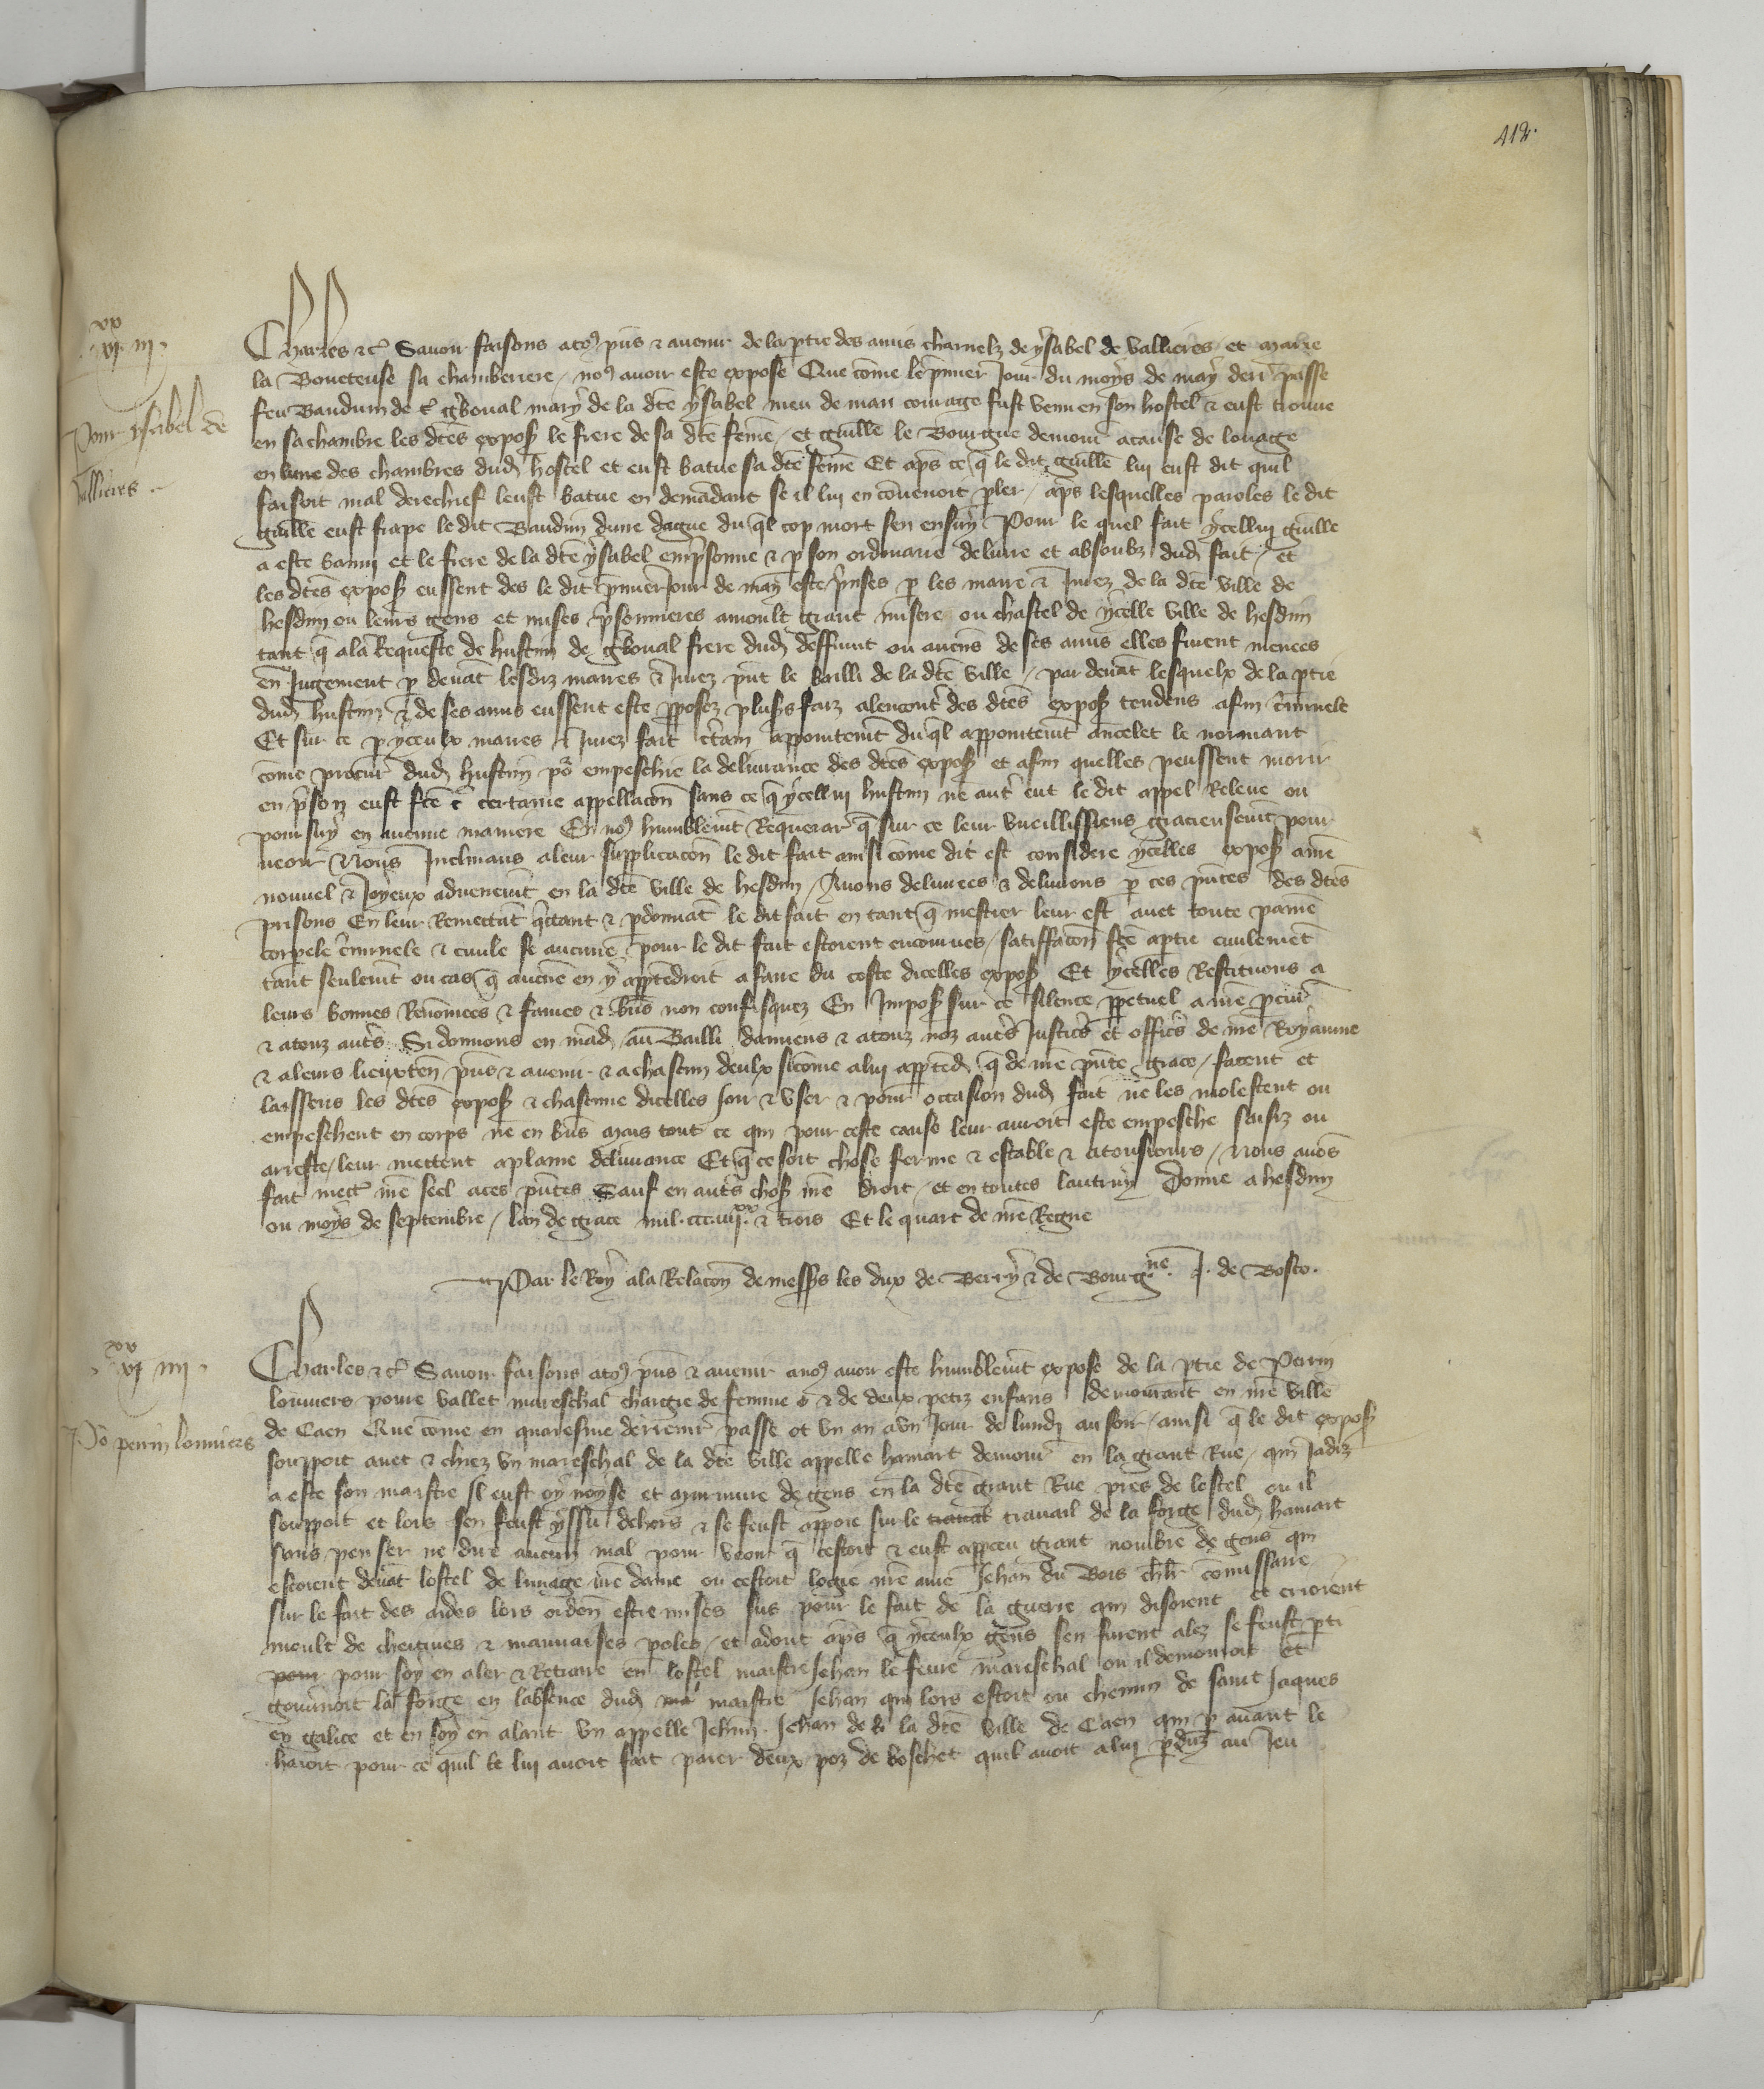 412.
xx
vi iii.
Pour ysabel de
vallieres.
Charles etc. Savoir faisons a to9 pns et avenir de la ptie des amis charnelz de ysabel de vallieres et marie
la Bouteuse sa chamberiere, no9 avoir este expose Que come le pmier Jour du moys de may derr passe
feu Baudum de mary de la dte ysabel meu de mau courage fust venu en son hostel et eust trouve
en sa chambre les dtes expos le frere de sa dte feme, et guille le Bourgue demour a cause de louage
en lune des chambres dud hostel et eust batue sa dte feme Et aps ce q le dit guille lui eust dit quil
faisoit mal derechief leust batue en demadant se il lui en covenoit pler, aps lesquelles paroles le dit
guille eust frape le dit Baudum dune dague du ql cop mort sen ensuy Pour le quel fait ycellui guille
a este banni et le frere de la dte ysabel emprisonne et p son ordinaire delivre et absoubz dud fait, et
les dtes expos eussent des le dit pmier Jour de may este prinses p les maire et Jurez de la dte ville de
hesdin ou leurs gens et mises prisonnieres a moult grant misere ou chastel de ycelle ville de hesdin
tant q a la Requeste de hustin de frere dud deffunt ou aucuns de ses amis elles furent menees
en Jugement p devat lesdiz maires et Jurez pnt le bailli de la dte ville, par devat lesquelx de la ptie
dud hustin et de ses amis eussent este pposez plus faiz alencontr des dtes expos tendens afin criminele
Et sur ce p yceulx maires et Jurez fait ctain appointemt du ql appointemt ancelet le normant
come procur dud hustin po empeschie la delivrance des dtes expos et afin quelles peussent morir
en prison eust fte certaine appellacon sans ce q ycellui hustin ne autr eut le dit appel Releve ou
poursuy en aucune maniere En no9 humblemt Requerar q sur ce leur vueillissiens gracieusemt pour
veoir Et Nous Inclinans a leur supplicacon le dit fait ainsi come dit est considere ycelles expos a nre
nouvel et Joyeux advenemt en la dte ville de hesdin, Avons delivrees et delivrons p ces pntes des dtes
prisons En leur Remectat qctant et pdonnat le dit fait en tant q mestier leur est avec toute paine
corpele criminele et civile se aucune pour le dit fait estoient encourues, satiffacon fte a ptie civilemet
tant seulemt ou cas q aucune en y apptedroit a faire du coste dicelles expos Et ycelles Restituons a
leurs bonnes Renomees et fames et bns non confisquez En Impos sur ce silence ppetuel a nre pcur
et a touz autrs Si donnons en mad au Bailli damiens et a touz noz autrs Justicrs et officrs de nre Royaume
et a leurs lieuxten pns et avenir et a chascun deulx sicome a lui appted q de nre pnte grace, facent et
laissens les dtes expos et chascune dicelles Joir et user et pour occasion dud fait ne les molestent ou
empeschent en corps ne en bns mais tout ce qui pour ceste cause leur auroit este empesche saisiz ou
arreste, leur mettent a plaine delivrance Et q ce soit chose ferme et estable et a tousiours, Nous avos
fait mect nre seel a ces pntes Sauf en autrs chos nre droit, et en toutes lautruy Donne a hesdin
ou moys de septembre, lan de grace mil.ccc.iiii.xx et trois Et le quart de nre Regne
Par le Roy a la Relacon de messrs les dux de Berry et de Bourgne. J. de Bosco.
xx
vi iiii.
Po perrin lonviers
Charles etc. Savoir faisons a to9 pns et avenir a no9 avoir este humblemt expose de la ptie de Perrin
lonviers povre vallet mareschal chargie de femme et de deux petiz enfans demourant en nre ville
de Caen Que come en quaresme derrenir passe ot un an a un Jour de lundi au soir, ainsi q le dit expos
souppoit avec et chiez un mareschal de la dte ville appelle hamart demour en la grant Rue, qui Jadiz
a este son maistre Il eust oy noyse et murmure de gens en la dte grant Rue pres de lostel ou il
souppoit et lors sen feust yssu dehors et se feust appoie sur le travat travail de la forge dud hamart
sans penser ne dire aucun mal pour veoir q cestoit et eust appceu grant nombre de gens qui
estoient devat lostel de limage nre dame ou cestoit logie nre ame Jehan du Bois chlr comissaire
sur le fait des aides lors orden estre mises sus pour le fait de la guerre qui disoient et crioient
moult de chetives et mauvaises poles, et adont aps q yceulx gens sen furent alez se feust pti
pour pour soy en aler et Retraire en lostel maistre Jehan le fevre mareschal ou il demouroit et
gouvnoit la forge en labsence dud ma maistre Jehan qui lors estoit ou chemin de saint Jaques
en galice et en soy en alant un appelle Jehan de la dte ville de Caen qui p avant le
haioit pour ce quil le lui avoit fait paier deux poz de boschet quil avoit a lui pduz au Jeu